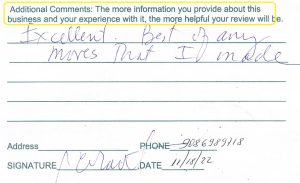 Additional Comments: The more information you provide about this
business and your experience with it, the more helpful your review will be.
Excellent. Best of any
moves that I made
Address
PHONE 9086989718
SIGNATURE DATE 11/18/22